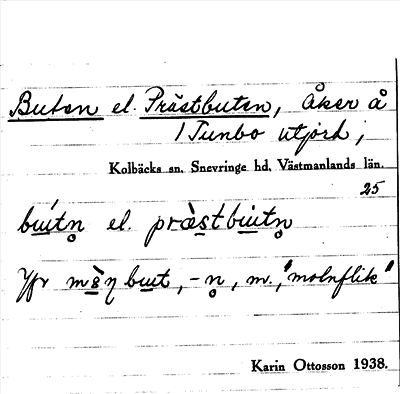 Buten el. Prästbuten, Åker å
1 Tunbo utjord;
Kolbäcks sn. Snevringe hd. Västmanlands län.
25
bu̲tn̥ el. præ̀s̲tbu̲tn̥
Jfr bu̲t, -n̥, m., "molnflik"
Karin Ottosson 1938.